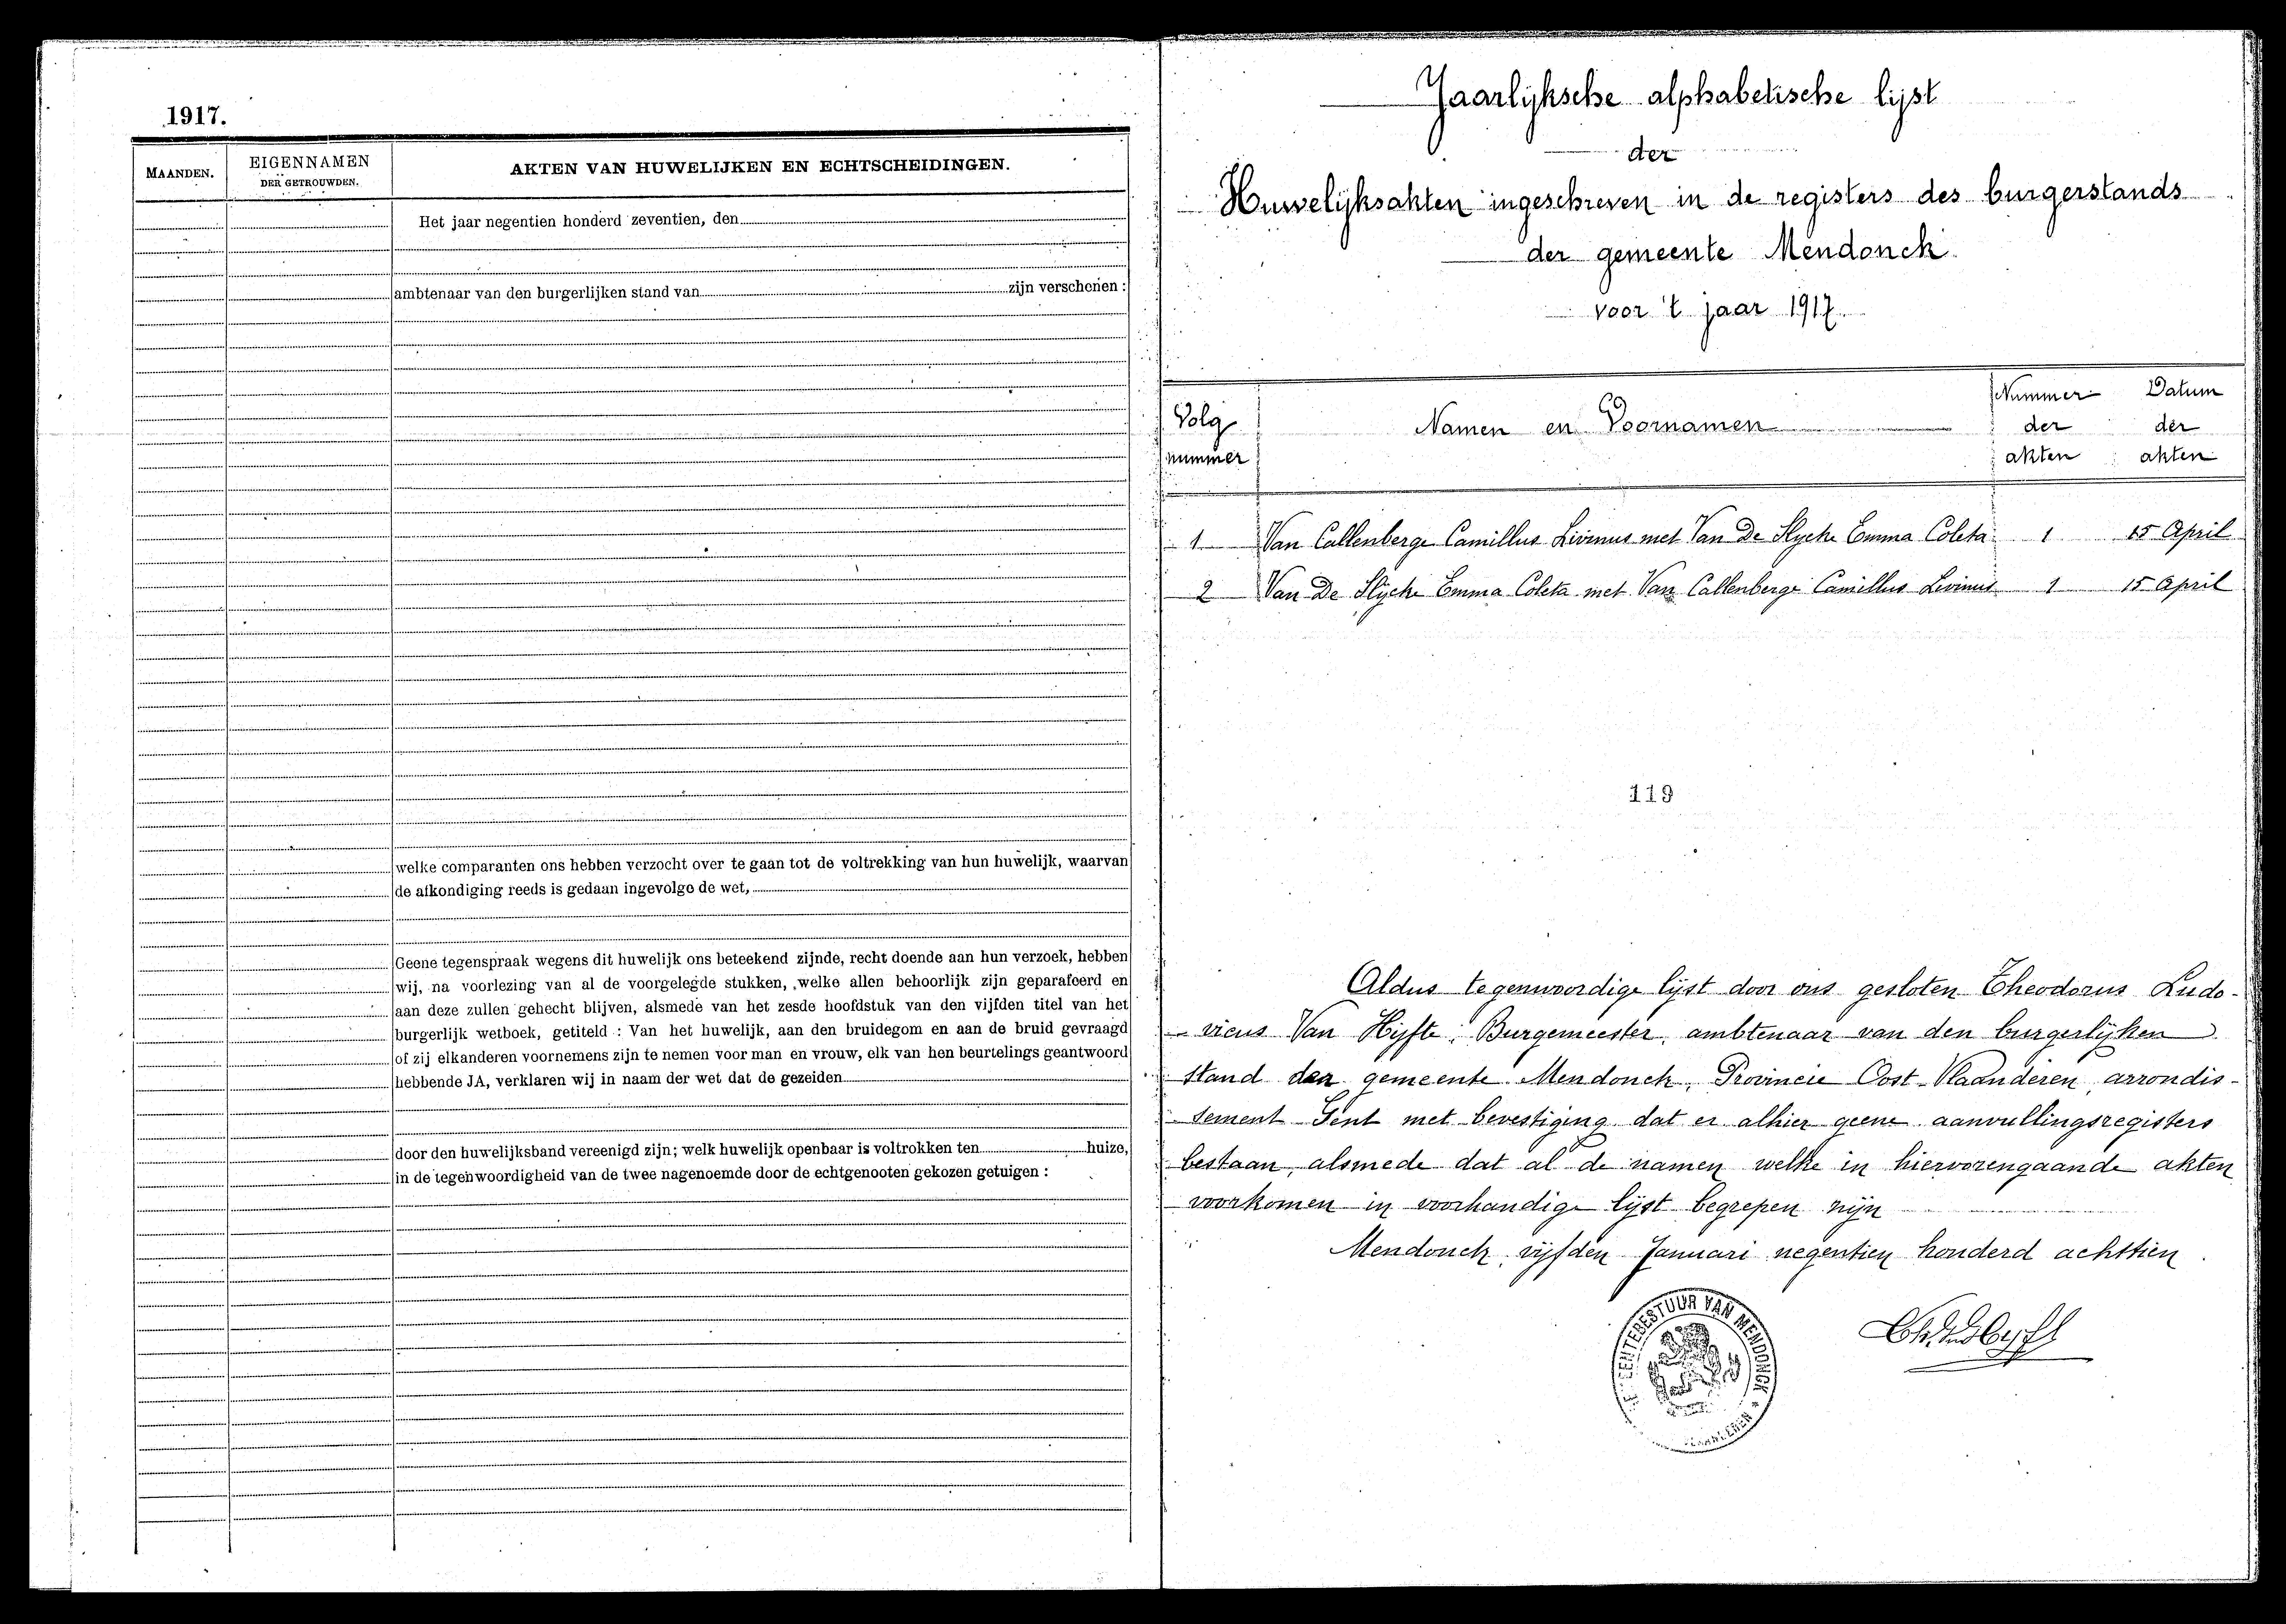 1917.
MAANDEN.
EIGENNAMEN
DER GETROUWDEN.
AKTEN VAN HUWELIJKEN EN ECHTSCHEIDINGEN.
Het jaar negentien honderd zeventien, den
ambtenaar van den burgerlijken stand van zijn verschenen :
welke comparanten ons hebben verzocht over te gaan tot de voltrekking van hun huwelijk, waarvan
de afkondiging reeds is gedaan ingevolge de wet,
Geene tegenspraak wegens dit huwelijk ons beteekend zijnde, recht doende aan hun verzoek, hebben
wij, na voorlezing van al de voorgelegde stukken, welke allen behoorlijk zijn geparafeerd en
aan deze zullen gehecht blijven, alsmede van het zesde hoofdstuk van den vijfden titel van het
burgerlijk wetboek, getiteld : Van het huwelijk, aan den bruidegom en aan de bruid gevraagd
of zij elkanderen voornemens zijn te nemen voor man en vrouw, elk van hen beurtelings geantwoord
hebbende JA, verklaren wij in naam der wet dat de gezeiden
door den huwelijksband vereenigd zijn; welk huwelijk openbaar is voltrokken ten huize,
in de tegenwoordigheid van de twee nagenoemde door de echtgenooten gekozen getuigen :
Jaarlijksche alphabetische lijst
der
Huwelijksakten ingeschreven in de registers des burgerstands
der gemeente Mendonck
voor 't jaar 1917.
Volg
nummer
Namen en Voornamen
Nummer
der
akten
Datum
der
akten
1 Van Callenberge Camillus Livinus met Van De Slycke Emma Coleta 1 15 April
2 Van De Slycke Emma Coleta met Van Callenberge Camillus Livinus 1 15 April
119
Aldus tegenwoordige lijst door ons gesloten Theodorus Ludo-
vicus Van Hyfte, Burgemeester, ambtenaar van den burgerlijken
stand der gemeente Mendonck, Provincie Oost-Vlaanderen, arrondis-
sement Gent met bevestiging dat er alhier geene aanvullingsregisters
bestaan, alsmede dat al de namen welke in hiervorengaande akten
voorkomen in voorhandige lijst begrepen zijn
Mendonck vijfden Januari negentien honderd achttien.
GEMEENTEBESTUUR VAN MENDONCK